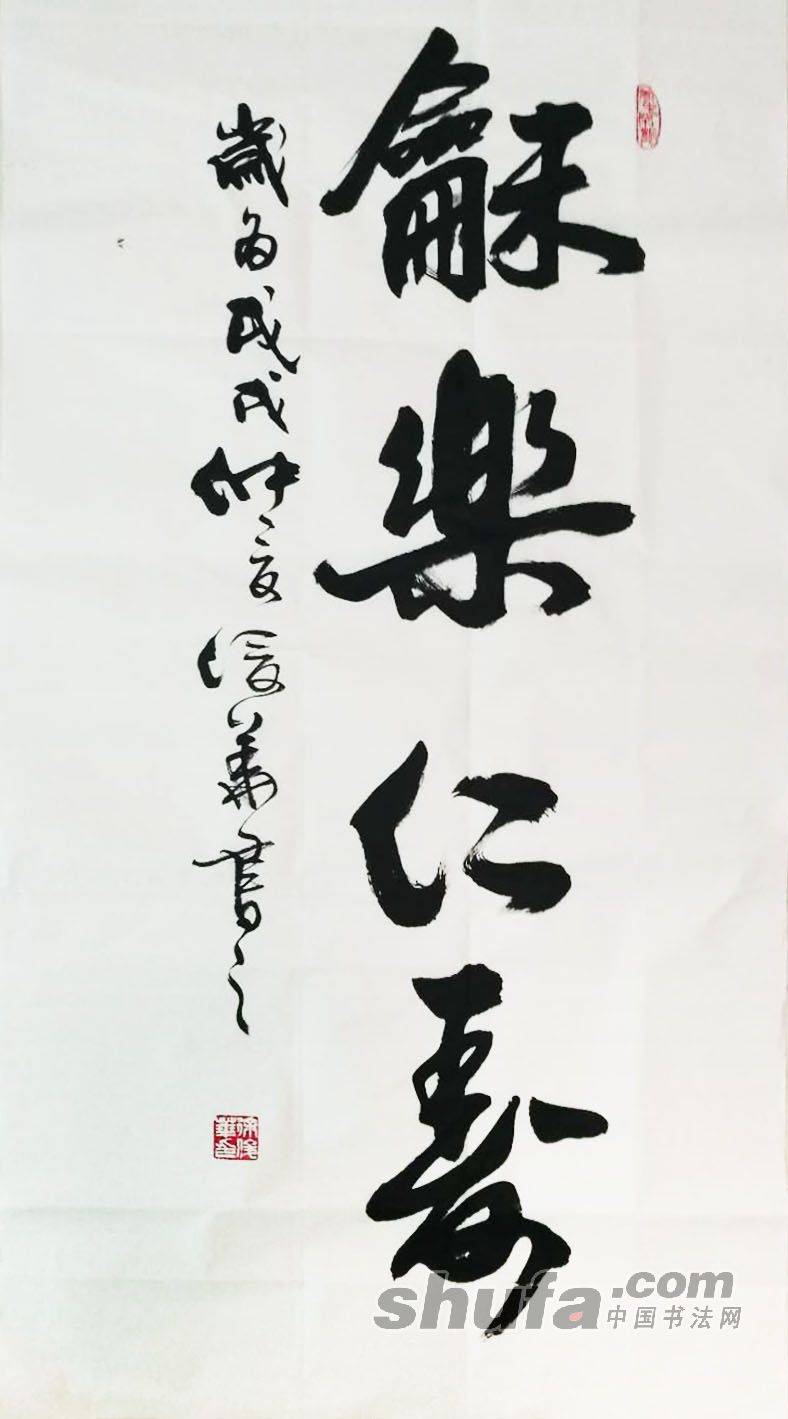 龢樂仁壽
歲在戊戌仲夏俊華書之
shufa.com
中国书法网